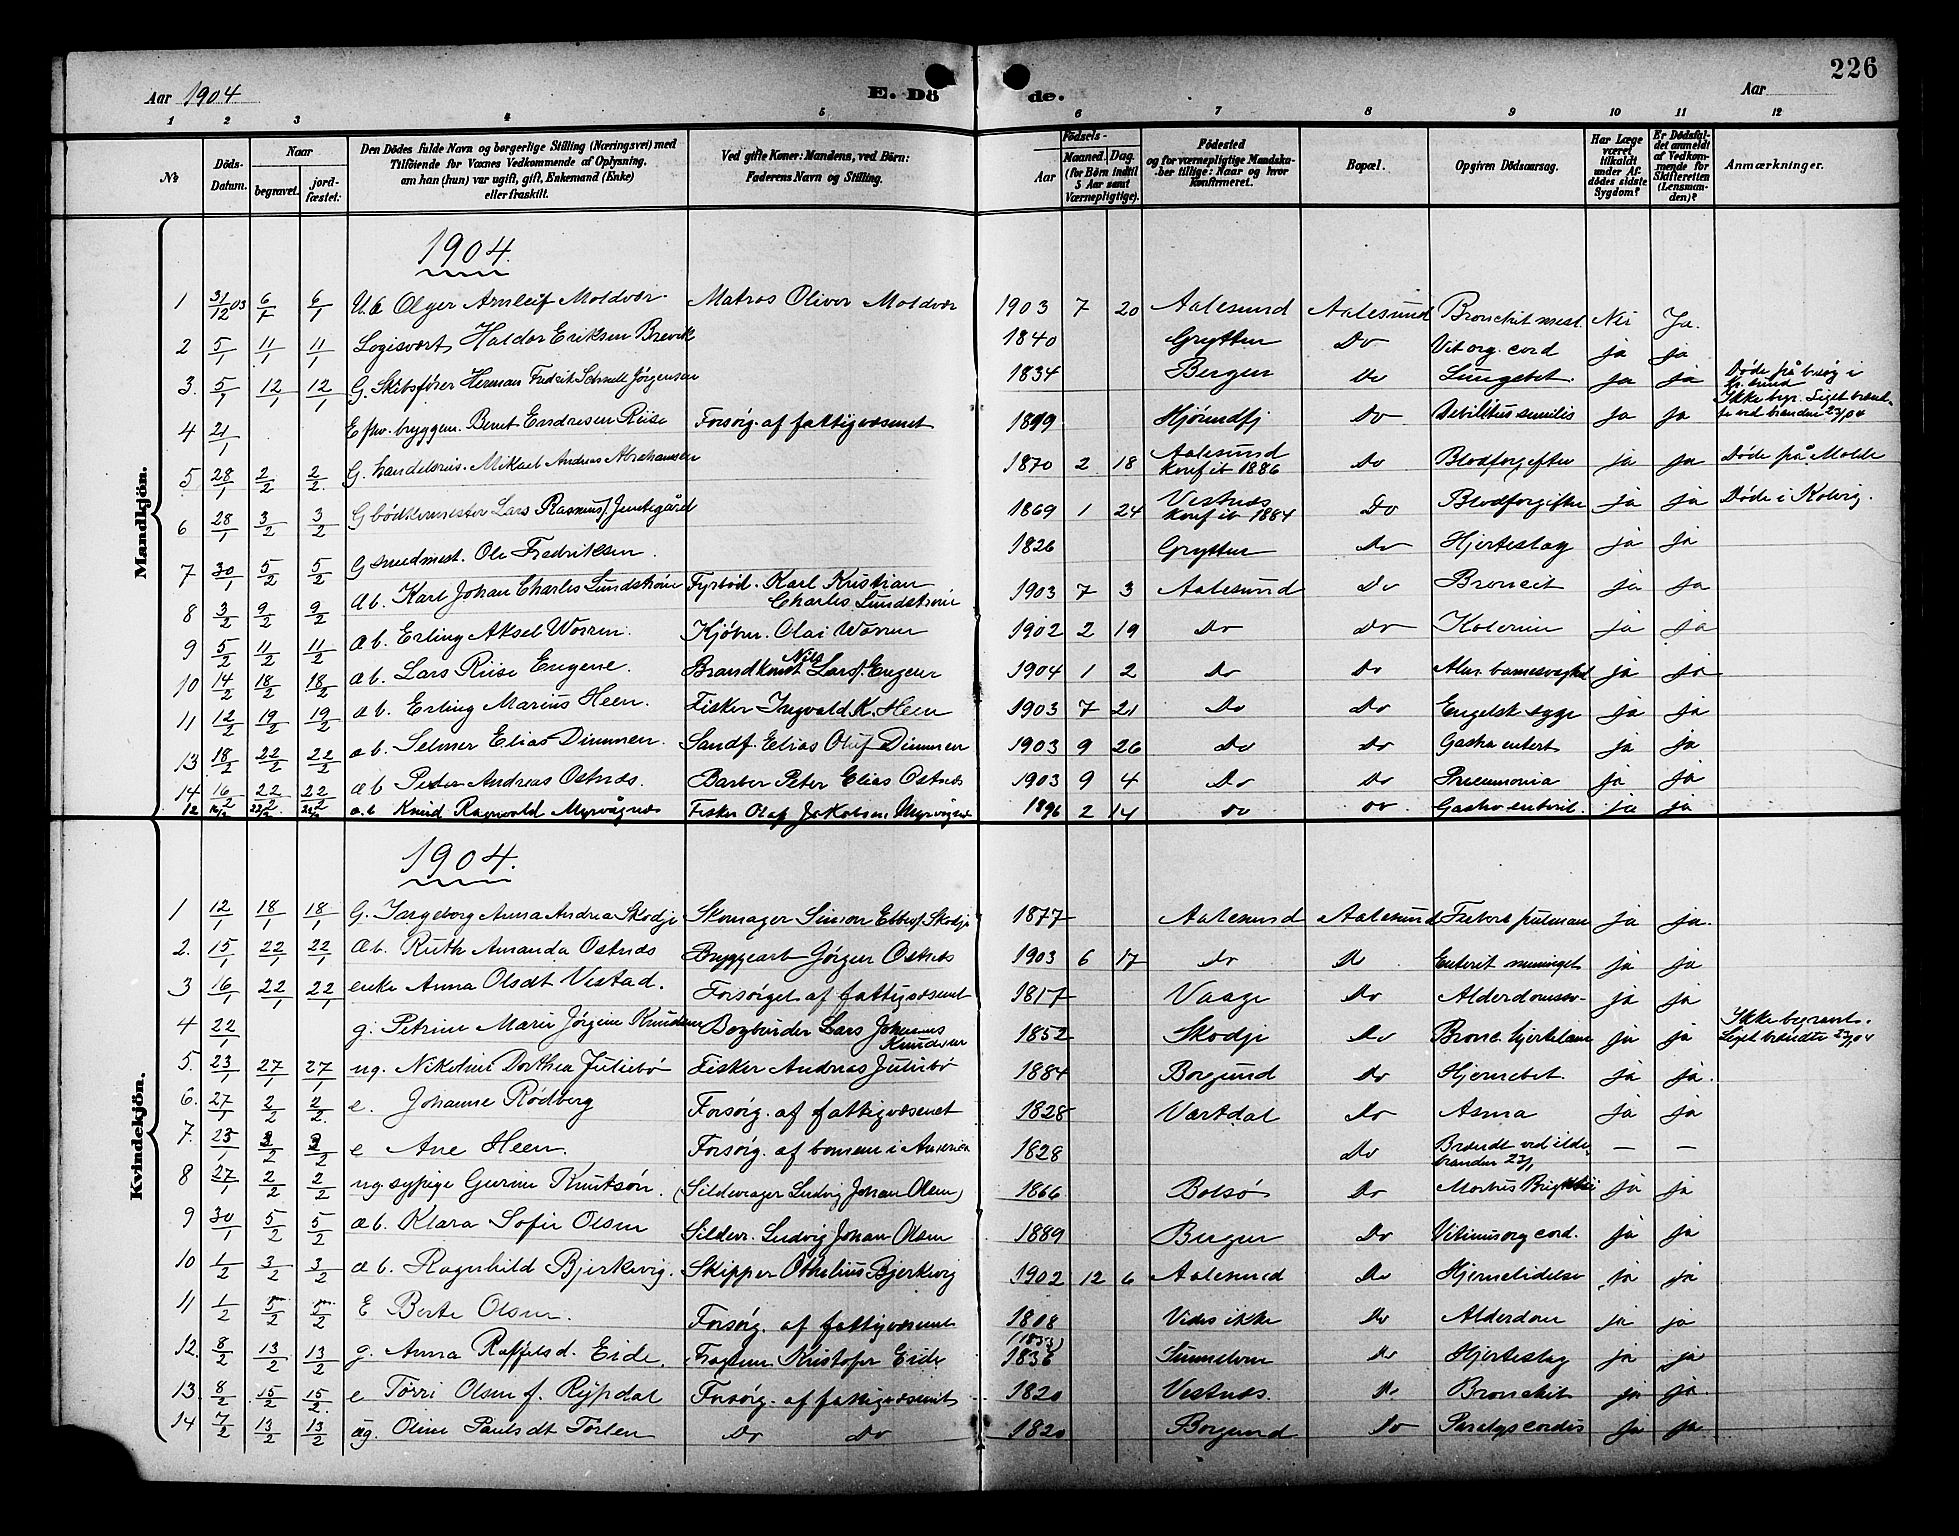 226
Aar 1904
E. Dö de.
Aar
1 2 3 4 5 6 7 8 9 10 11 12
№ Döds-Datum. Naar begravet. jordfæstet. Den Dödes fulde Navn og borgerlige Stilling (Næringsvei) med Tilföiende for Voxnes Vedkommende af Oplysning, om han (hun) var ugift, gift, Enkemand (Enke) eller fraskilt. Ved gifte Koner: Mandens, ved Börn: Faderens Navn og Stilling. Födsels- Aar Maaned. Dag. (for Börn indtil 5 Aar samt Værnepligtige). Födested og for værnepligtige Mandskaber tillige: Naar og hvor konfirmeret. Bopæl. Opgiven Dödsaarsag. Har Læge været tilkaldt under Afdödes sidste Sygdom? Er Dödsfaldet anmeldt af Vedkommende for Skifteretten (Lensmanden)? Anmærkninger.
Mandkjön.
1904.
1 31/12 03 6/1 6/1 Olger Arnleif Moldvær. Matros Oliver Moldvær 1903 7 20 Aalesund Aalesund Nei Ja.
2 5/1 11/1 11/1 Logisvært Haldor Eriksen Brevik 1840 Grytten Do Vit org. cord ja ja
3. 5/1 12/1 12/1 G. Skibsfører Herman Fredrik Schnell Jørgensen 1834 Bergen Do Lungebet. ja ja Døde på besøg i
4 21/1 Bernt Endresen Riise Forsørg. af fattigvæsenet 1819 Hjørundfj Do Debilitas senilis ja ja Ikke begr. Liget brændte ved branden 23/1 04
5 28/1 2/2 2/2 G. handelsreis. Mikael Andreas Abrahamsen 1870 2 18 Aalesund konf ib 1886 Do Blodforgiftn ja ja Døde på Molde
6 28/1 3/2 3/2 G bødkermester Lars Rasmus J. Jemtegård 1869 1 24 Vestnæs konf ib 1884 Do Blodforgiftn ja ja Døde i Kolvig.
7 30/1 5/2 5/2 G smedmest. Ole Fredriksen. 1826 Grytten Do Hjerteslag ja ja
8 3/2 9/2 9/2 æb. Karl Johan Charles Lundstrøm Fyrbød. Karl Kristian Charles Lundstrøm 1903 7 3 Aalesund Do Broncit ja ja
9 5/2 11/2 11/2 æb. Erling Aksel Worren. Kjøbm. Olai Worren 1902 2 19 Do Do Kolerine ja ja
10 14/2 18/2 18/2 æb. Lars Riise Engene. Brandkonst Nils Larsf. Engene 1904 1 2 Do Do Alm. barnesvaghed ja ja
11 12/2 19/2 19/2 æb. Erling Marius Heen. Fisker Ingvald K. Heen 1903 7 21 Do Do Engelsk syge ja ja
13 18/2 22/2 22/2 æb. Selmer Elias Dimmen. Sandf. Elias Oluf Dimmen 1903 9 26 Do Do Gastro entert ja ja
14 16/2 22/2 22/2 æb Peder Andreas Ostnæs. Barber Peter Elias Ostnæs 1903 9 4 Do Do Pneumonia ja ja
12 16/2 22/2 22/2 æ.b Knud Ragnvald Myrvågnæs Fisker Olaf Jakobsen Myrvågnæs 1896 2 14 do do Gastro enterit. ja ja
Kvindekjön.
1904.
1 12/1 18/1 18/1 G. Ingeborg Anna Andrea Skodje Skomager Simon Skodje 1877 Aalesund Aalesund ja ja.
2. 15/1 22/1 22/1 æb. Ruth Amanda Ostnæs Byggearb Jørgen Ostnæs 1903 6 17 do Do Enterit meninget ja ja
3 16/1 22/1 22/1 enke Anna Olsdt Vestad. Forsørget af fattigvæsenet 1817 Vaage Do Alderdomssv- ja ja
4 22/1 g. Petrine Marie Jørgine Knudsen Bogbinder Lars Johannes Knudsen 1852 Skodje Do ja ja Ikke begravet. Liget brændte 23/1 04
5. 23/1 27/1 27/1 ug. Nikoline Dorthea Julebø Fisker Andreas Julebø 1884 Borgund Do Hjernebet. ja ja.
6. 27/1 2/2 2/2. e. Johanne Rødberg Forsørg. af fattigvæsenet 1828 Vartdal Do Asma ja ja
7. 23/1 3/2 3/2 e Ane Heen. Forsørg. af børnene i Amerika 1828 Do Brændt ved ildebranden 23/1 — —
8 27/1 2/2 2/2 ug. sypige Gurine Knutsøn. (Sildevrager Ludvig Johan Olsen) 1866 Bolsø Do Morbus Brightii ja ja
9 30/1 5/2 5/2 æb. Klara Sofie Olsen Sildevr. Ludvig Johan Olsen 1889 Bergen Do Vitium org cord. ja ja
10 1/2 3/2 3/2 æb. Ragnhild Bjerkevig. Skipper Othelius Bjerkevig 1902 12 6 Aalesund Do Hjernelidelse ja ja
11 1/2 5/2 5/2 E Berte Olsen. Forsørg. af fattigvæsenet 1808 Vides ikke Do Alderdom ja ja
12. 8/2 13/2 13/2 g. Anna Raffelsd. Eide. Kristofer Eide (1833) 1836 Sunnelven Do Hjerteslag ja ja
13. 8/2 15/2 15/2. e Tørri Olsen f. Rypdal Forsørg. af fattigvæsenet 1820 Vestnæs. Do Bronchit ja ja.
14 7/2 13/2 13/2 ug. Oline Paulsdt Tørlen Do Do 1820 Borgund Do Paralys cordis ja ja